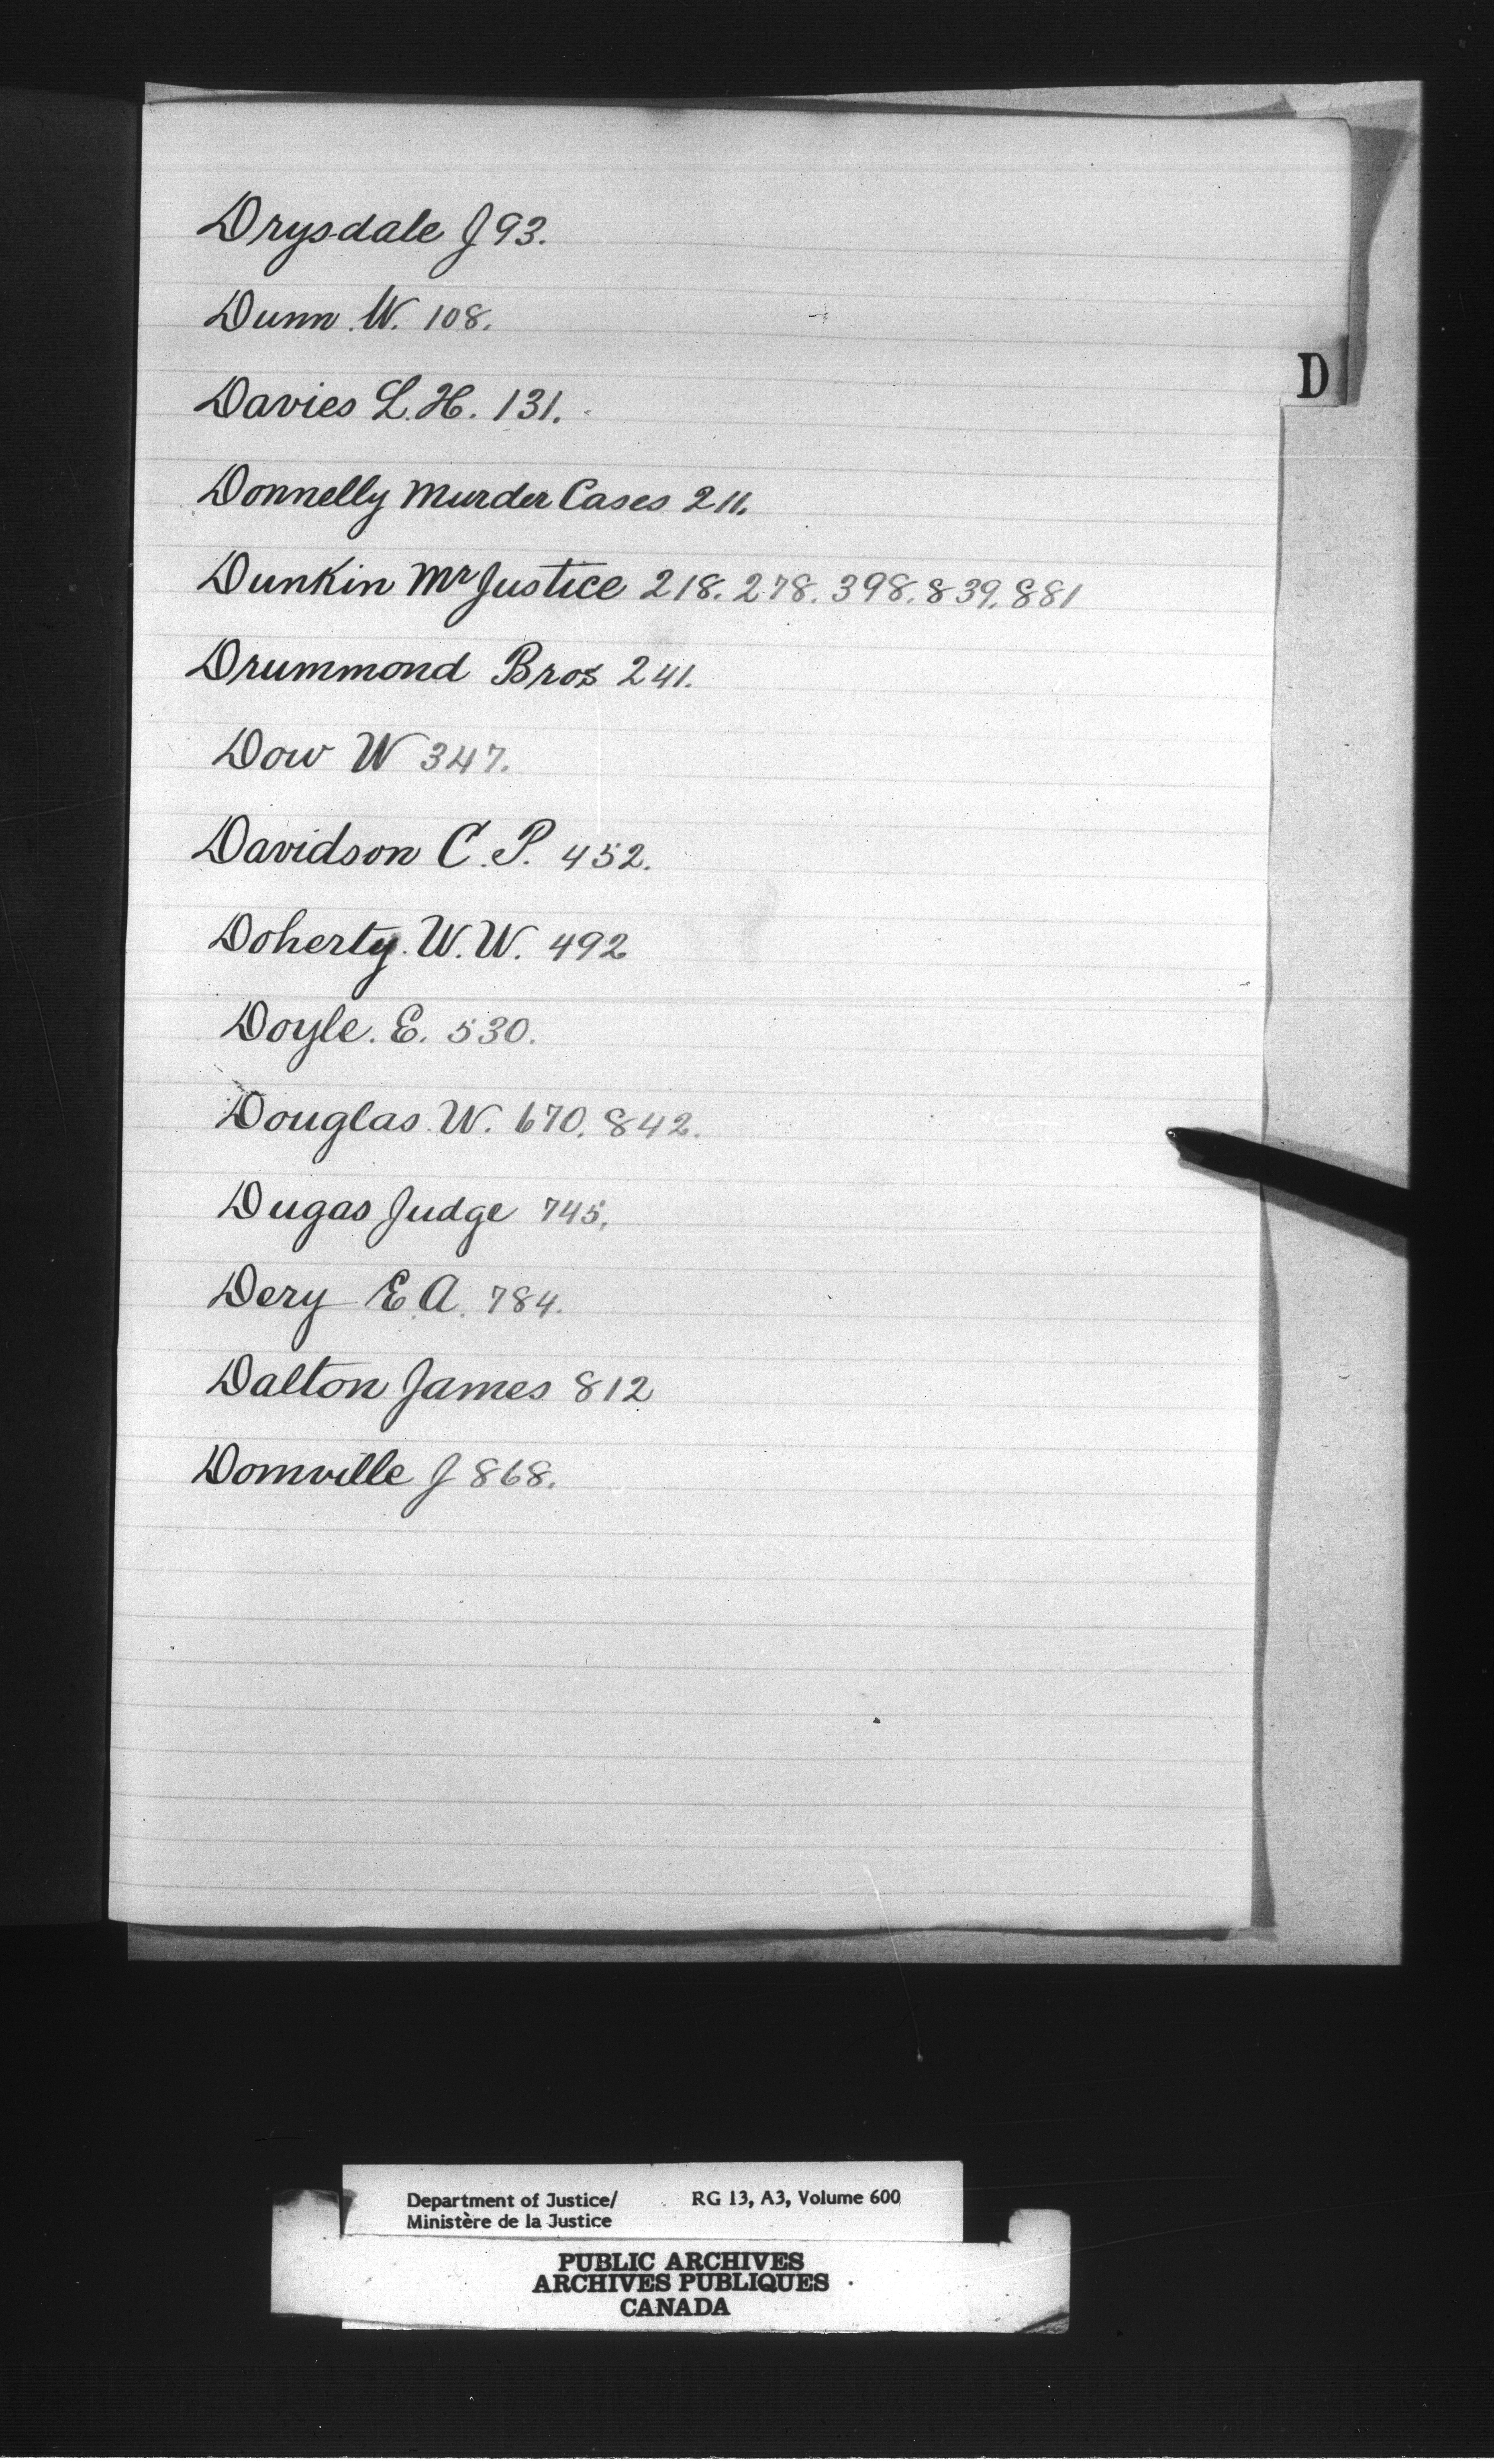 Drysdale J 93.
Dunn. W. 108.
D
Davies L. H. 131.
Donnelly Murder Cases 211.
Dunkin Mr Justice 218. 278. 398. 839. 881
Drummond Bros 241.
Dow W 347.
Davidson C. P. 452.
Doherty. W. W. 492
Doyle. E. 530.
Douglas. W. 670. 842.
Dugas Judge 745.
Dery E. A. 784.
Dalton James 812
Domville J 868.
Department of Justice/ RG 13, A3, Volume 600
Ministère de la Justice
PUBLIC ARCHIVES
ARCHIVES PUBLIQUES
CANADA